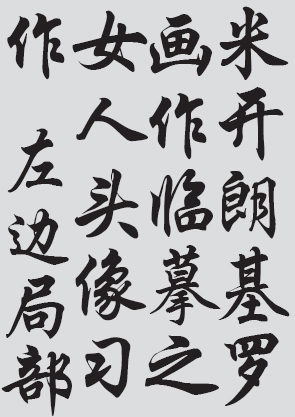 米开朗基罗
画作临摹之
女人头像习
作 左边局部